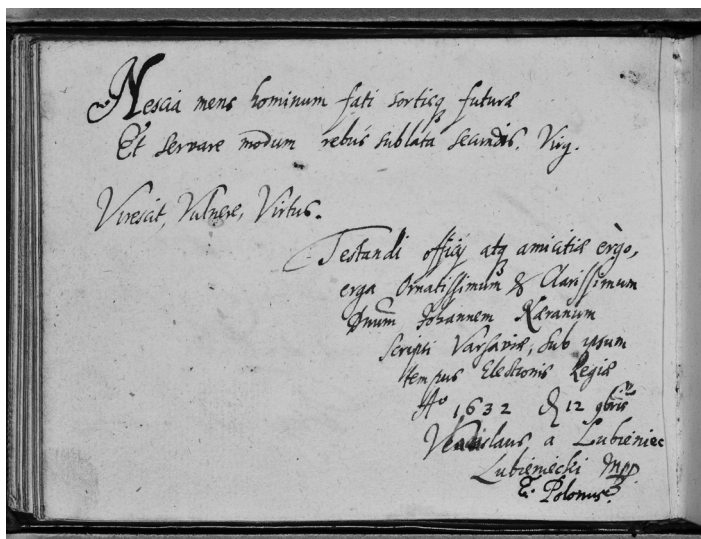 Nescia mens hominum fati sortisq futuræ
Et servare modum rebus sublata secundis. Virg.
Virescit, Vulnere, Virtus.
Testandi officij atq amicitiæ ergo,
erga Ornatissimum & Clarissimum
Dnum Johannem Næranum
scripsi Varsaviæ, sub ipsum
tempus Electionis Regiæ
Aº 1632 D 12 9bris
a Lubieniec
Lubieniecki mpp
E. Polonus.